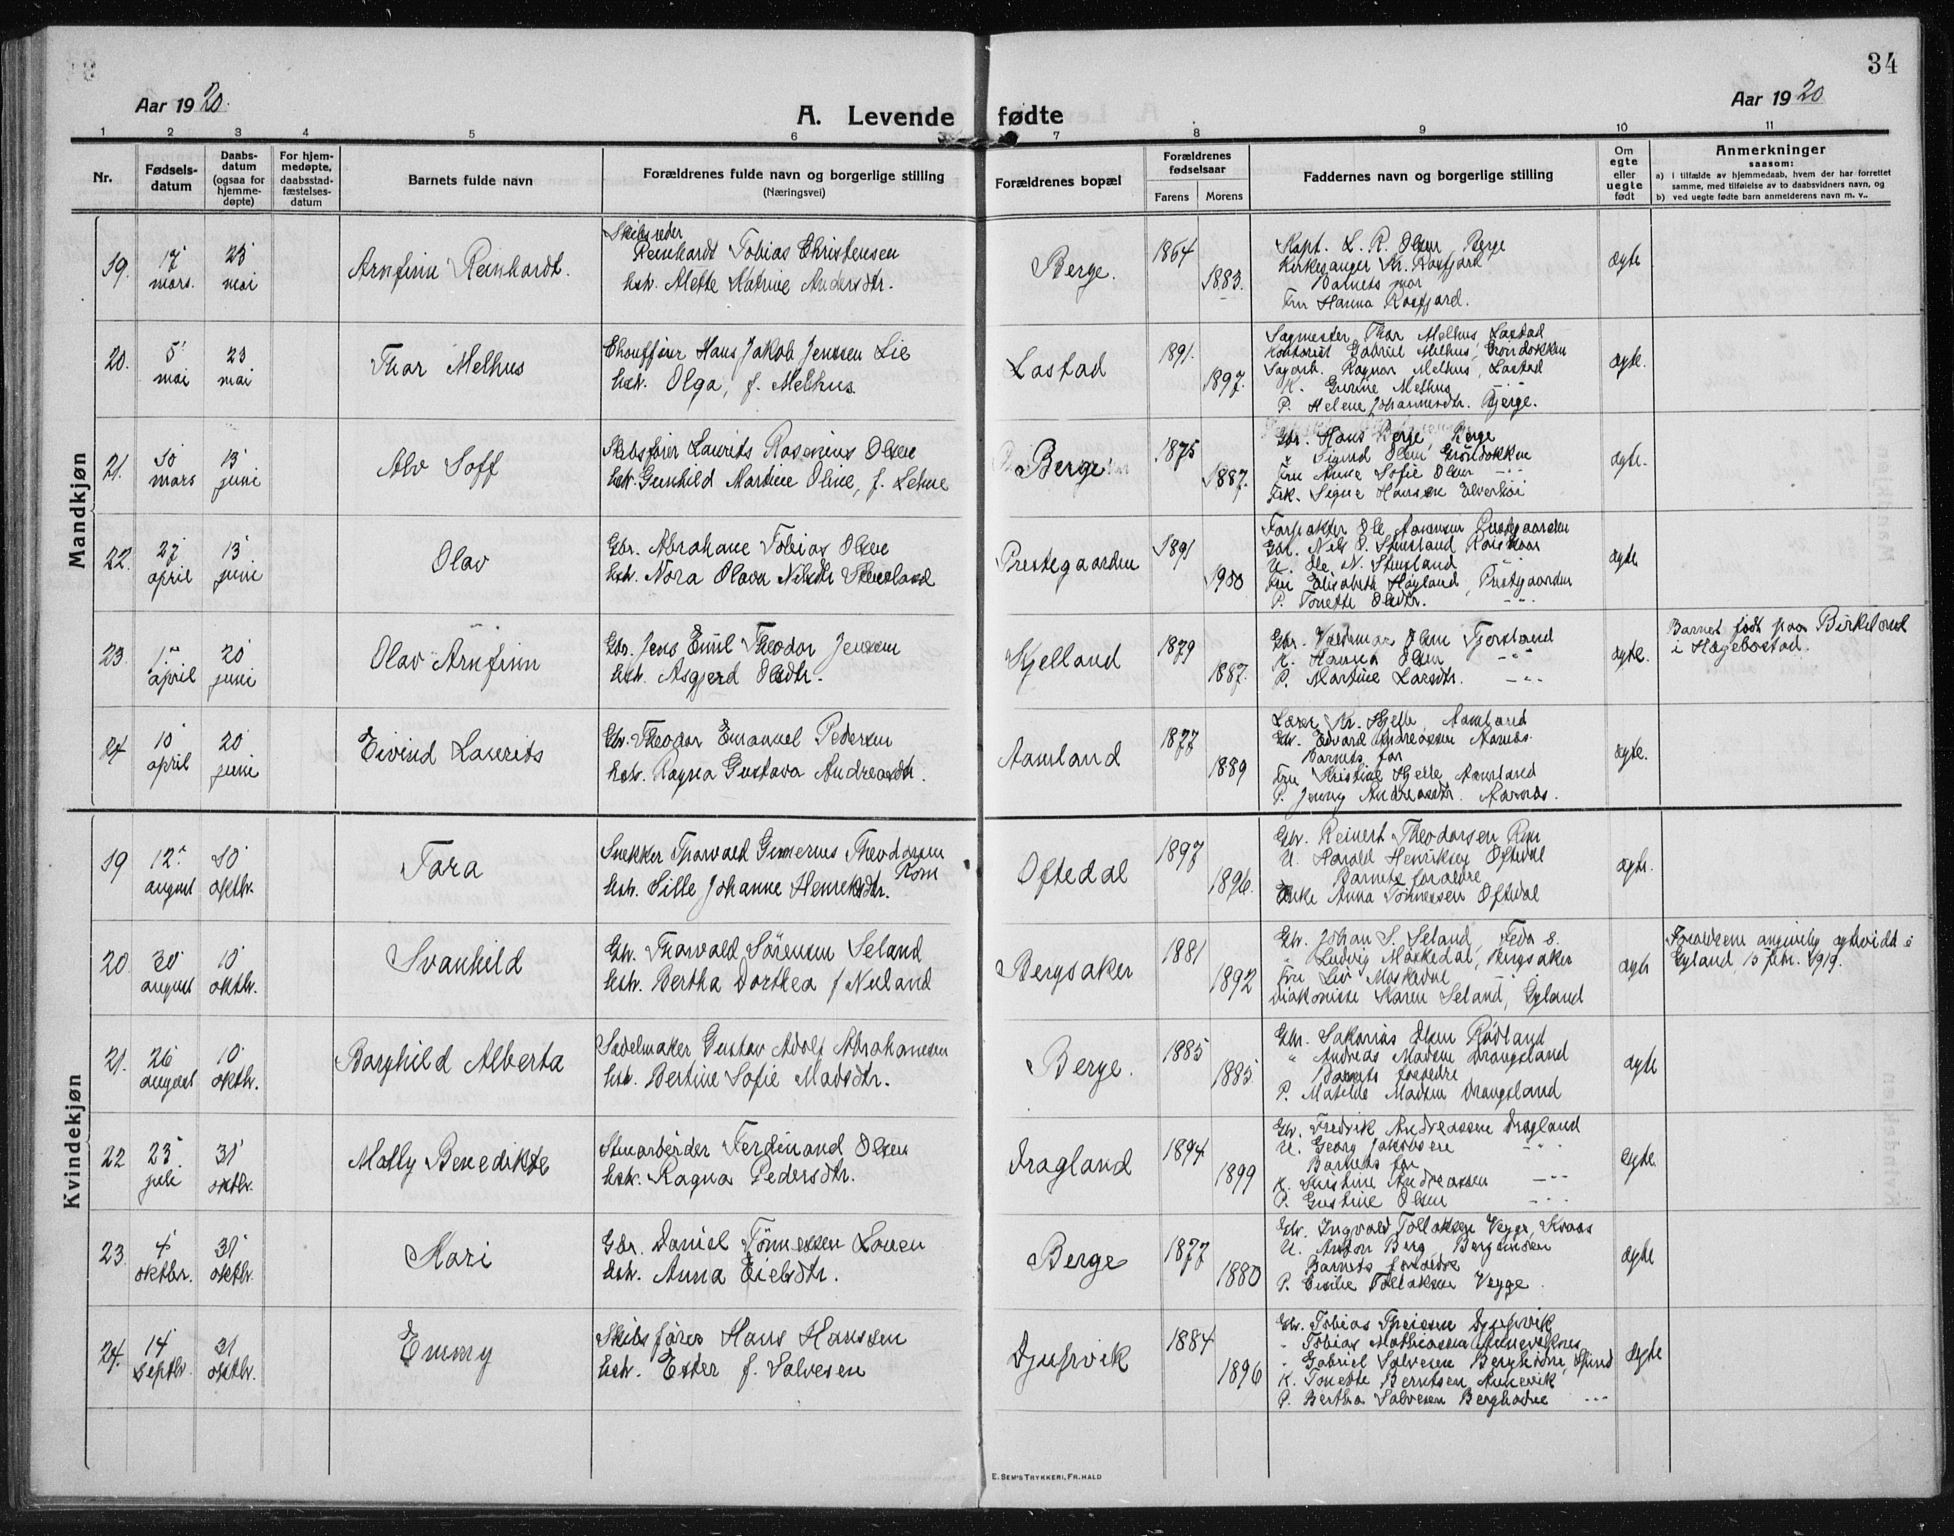 34
Aar 1920.
A. Levende fødte
Aar 1920
1 2 3 4 5 6 7 8 9 10 11
Nr.
Fødsels-
datum
Daabs-
datum
(ogsaa for
hjemme-
døpte)
For hjem-
medøpte,
daabsstad-
fæstelses-
datum
Barnets fulde navn
Forældrenes fulde navn og borgerlige stilling
(Næringsvei)
Forældrenes bopæl
Forældrenes
fødselsaar
Farens Morens
Faddernes navn og borgerlige stilling
Om
egte
eller
uegte
født
Anmerkninger
saasom:
a) i tilfælde av hjemmedaab, hvem der har forrettet
samme, med tilføielse av to daabsvidners navn, og
b) ved uegte fødte barn anmelderens navn m. v..
Mandkjøn
19. 17 mars. 23 mai
Arnfinn Reinhardt.
Skibsreder
Reinhardt Tobias Christensen
Hst. Alette Katrine Andersdtr.
Berge.
1864
1883.
Kapt. L. R. Olsen Berge
Kirkesanger Kr. Rosfjord
Barnets mor
Fru Hanna Rosfjord.
ægte
20. 5 mai 23 mai
Thor Melhus
Chauffør Hans Jakob Jenssen Lie
hst. Olga, f. Melhus.
Lastad
1891.
1897.
Sagmester Thor Melhus Lastad
Kontorist Gabriel Melhus,
Sagarb. Ragnar Melhus, Lastad
K. Gurine Melhus —"—
P. Helene Johannesdtr. Bjerge.
ægte.
21. 30 mars 13 juni
Alv Soff
Skibsfører Laurits Rasmus Olsen
hst. Gunhild Martine Oline, f. Lehne
Berge
1875
1887.
Gbr. Hans Berge, Berge
" Sigurd Olsen
Fru Anne Sofie Olsen —"—
Frk. Signe Hansen
ægte.
22. 27 april 13 juni
Olav
Gbr. Abrahane Tobias Olsen
hst. Nora Olava Nilsdtr.
Prestegaarden
1891
1900
Forpakter Ole Prestgaarden
Gbr. Nils O.
U. Ole N.
Fru Elisabeth Høyland, Prestgaarden
P. Tonette Olsdtr. —"—
ægte
23. april 20 juni
Olav Arnfinn
Gbr. Jens Emil Theodor Jensen
hst. Asgjerd Olsdtr.
Kjelland
1879
1887.
Gbr. Valdemar Olsen
K. Hanna Olsen —"—
P. Martine Larsdtr. —"—
ægte.
Barnet født paa Birkeland
i Hægebostad.
24 10 april 20 juni
Eivind Laurits
Gbr. Theodor Emanuel Pedersen
hst. Ragna Gustava Andreasdtr.
Aamland
1877
1889
Lærer Kr. Hjelle, Aamland
Gbr. Edvard Andreassen Aamdo.
Barnets far
Fru Kristine Hjelle, Aamland
P. Jenny Andreasdtr.
ægte.
Kvindekjøn
19 12 august 10 oktbr.
Tora
Snekker Thorvald Gunnerius Theodorsen
Rom
hst. Sille Johanne Henriksdtr.
Oftedal
1897
1896.
Gbr. Reinert Theodorsen Rom
U. Harald Henriksen Oftedal
Barnets forældre
Enke Anna Tønnessen Oftedal
ægte.
20. 30 august 10 oktbr.
Svanhild
Gbr. Thorvald Sørensen Seland
hst. Bertha Dorthea f. Neuland
Bergsaker
1881
1892
Gbr. Johan S. Seland, Feda s.
" Ludvig Moskedal, Bergsaker
Fru Liv Moskedal
Diakonisse Karen Seland, Gyland
ægte
Forældrene angivelig egteviedt i
Gyland 15 febr. 1919.
21. 26 august 10 oktbr.
Borghild Alberta
Sadelmaker Gustav Adolf Abrahamsen
hst. Bertine Sofie Madsdtr.
Berge.
1885
1885.
Gbr. Sakarias Olsen Rødland
" Andreas Madsen Drangsland
Barnets forældre
P. Matilde Madsen Drangsland
ægte
22 23 juli 31 oktbr.
Molly Benedikte
Stenarbeider Ferdinand Olsen
hst. Ragna Pedersdtr.
Dragland
1894
1899
Gbr. Fredrik Andreassen Dragland
U. Georg Jakobsen —"—
Barnets far
K. Andreassen —"—
P. Gustine Olsen —"—
egte.
23. 4 oktbr. 31 oktbr.
Mari
Gbr. Daniel Tønnessen Louen
hst. Anna Eielsdtr.
Berge
1877
1880
Gbr. Ingvald Tollaksen Vegge, Kvaas
U. Anton Berg, Bergemoen
Barnets forældre
P. Emilie Tollaksen Vegge.
ægte
24. 14 Septbr. 31 oktbr.
Emmy
Skibsfører Hans Hanssen
hst. Ester f. Salvesen
Djupvik
1884
1896
Gbr. Tobias Djupvik
" Tobias Mathiassen
" Gabriel Salvesen
K. Tonette Berntsen Aunevik
P. Bertha Salvesen —"—
ægte
E. SEM'S TRYKKERI, FR.HALD